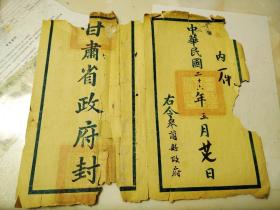 內一件
中華民國二十六年三月日
右令皋蘭縣政府
甘肅省政府封